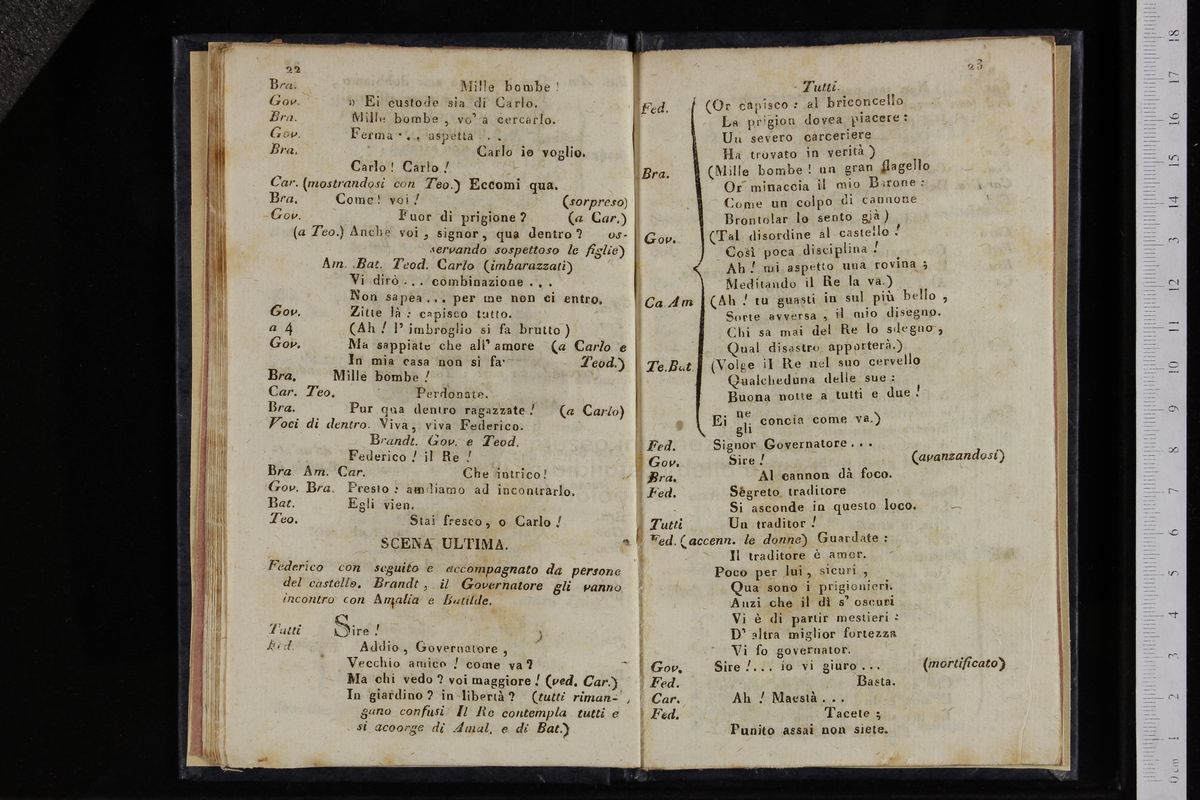 22
Bra. Mille bombe !
Gov. » Ei custode sia di Carlo.
Bra. Mille bombe , vo' a cercarlo.
Gov. Ferma . . . aspetta . . .
Bra. Carlo io voglio.
Carlo ! Carlo !
Car. (mostrandosi con Teo.) Eccomi qua.
Bra. Come ! voi ! (sorpreso)
Gov. Fuor di prigione ? (a Car.)
(a Teo.) Anche voi , signor , qua dentro ? os-
servando sospettoso le figlie)
Am. Bat. Teod. Carlo (imbarazzati)
Vi dirò . . . combinazione . . .
Non sapea . . . per me non ci entro.
Gov. Zitte là : capisco tutto.
a 4 (Ah ! l' imbroglio si fa brutto )
Gov. Ma sappiate che all' amore (a Carlo e
In mia casa non si fa' Teod.)
Bra. Mille bombe !
Car. Teo. Perdonate.
Bra. Pur qua dentro ragazzate ! (a Carlo)
Voci di dentro. Viva , viva Federico.
Brandt. Gov. e Teod.
Federico ! il Re !
Bra Am. Car. Che intrico !
Gov. Bra. Presto : andiamo ad incontrarlo.
Bat. Egli vien.
Teo. Stai fresco , o Carlo !
SCENA ULTIMA.
Federico con seguito e accompagnato da persone
del castello. Brandt , il Governatore gli vanno
incontro con Amalia e Batilde.
Tutti Sire !
Fed. Addio , Governatore ,
Vecchio amico ! come va ?
Ma chi vedo ? voi maggiore ! (ved. Car.)
In giardino ? in libertà ? (tutti riman-
gano confusi Il Re contempla tutti e
si acoorge di Amal. e di Bat.)
23
Tutti.
Fed. (Or capisco : al briconcello
La prigion dovea piacere :
Un severo carceriere
Ha trovato in verità )
Bra. (Mille bombe ! un gran flagello
Or minaccia il mio Barone :
Come un colpo di cannone
Brontolar lo sento già )
Gov. (Tal disordine al castello !
Così poca disciplina !
Ah ! mi aspetto una rovina ;
Meditando il Re la va.)
Ca Am (Ah ! tu guasti in sul più bello ,
Sorte avversa , il mio disegno.
Chi sa mai del Re lo sdegno ,
Qual disastro apporterà.)
Te.Bat (Volge il Re nel suo cervello
Qualcheduna delle sue :
Buona notte a tutti e due !
Ei ne
gli concia come va.)
Fed. Signor Governatore . . .
Gov. Sire ! (avanzandosi)
Bra. Al cannon dà foco.
Fed. Segreto traditore
Si asconde in questo loco.
Tutti Un traditor !
Fed. (accenn. le donne) Guardate :
Il traditore è amor.
Poco per lui , sicuri ,
Qua sono i prigionieri.
Anzi che il dì s' oscuri
Vi è di partir mestieri :
D' altra miglior fortezza
Vi fo governator.
Gov. Sire ! . . . io vi giuro . . . (mortificato)
Fed. Basta.
Car. Ah ! Maestà . . .
Fed. Tacete ;
Punito assai non siete.
0 cm 1 2 3 4 5 6 7 8 9 10 11 12 13 14 15 16 17 18